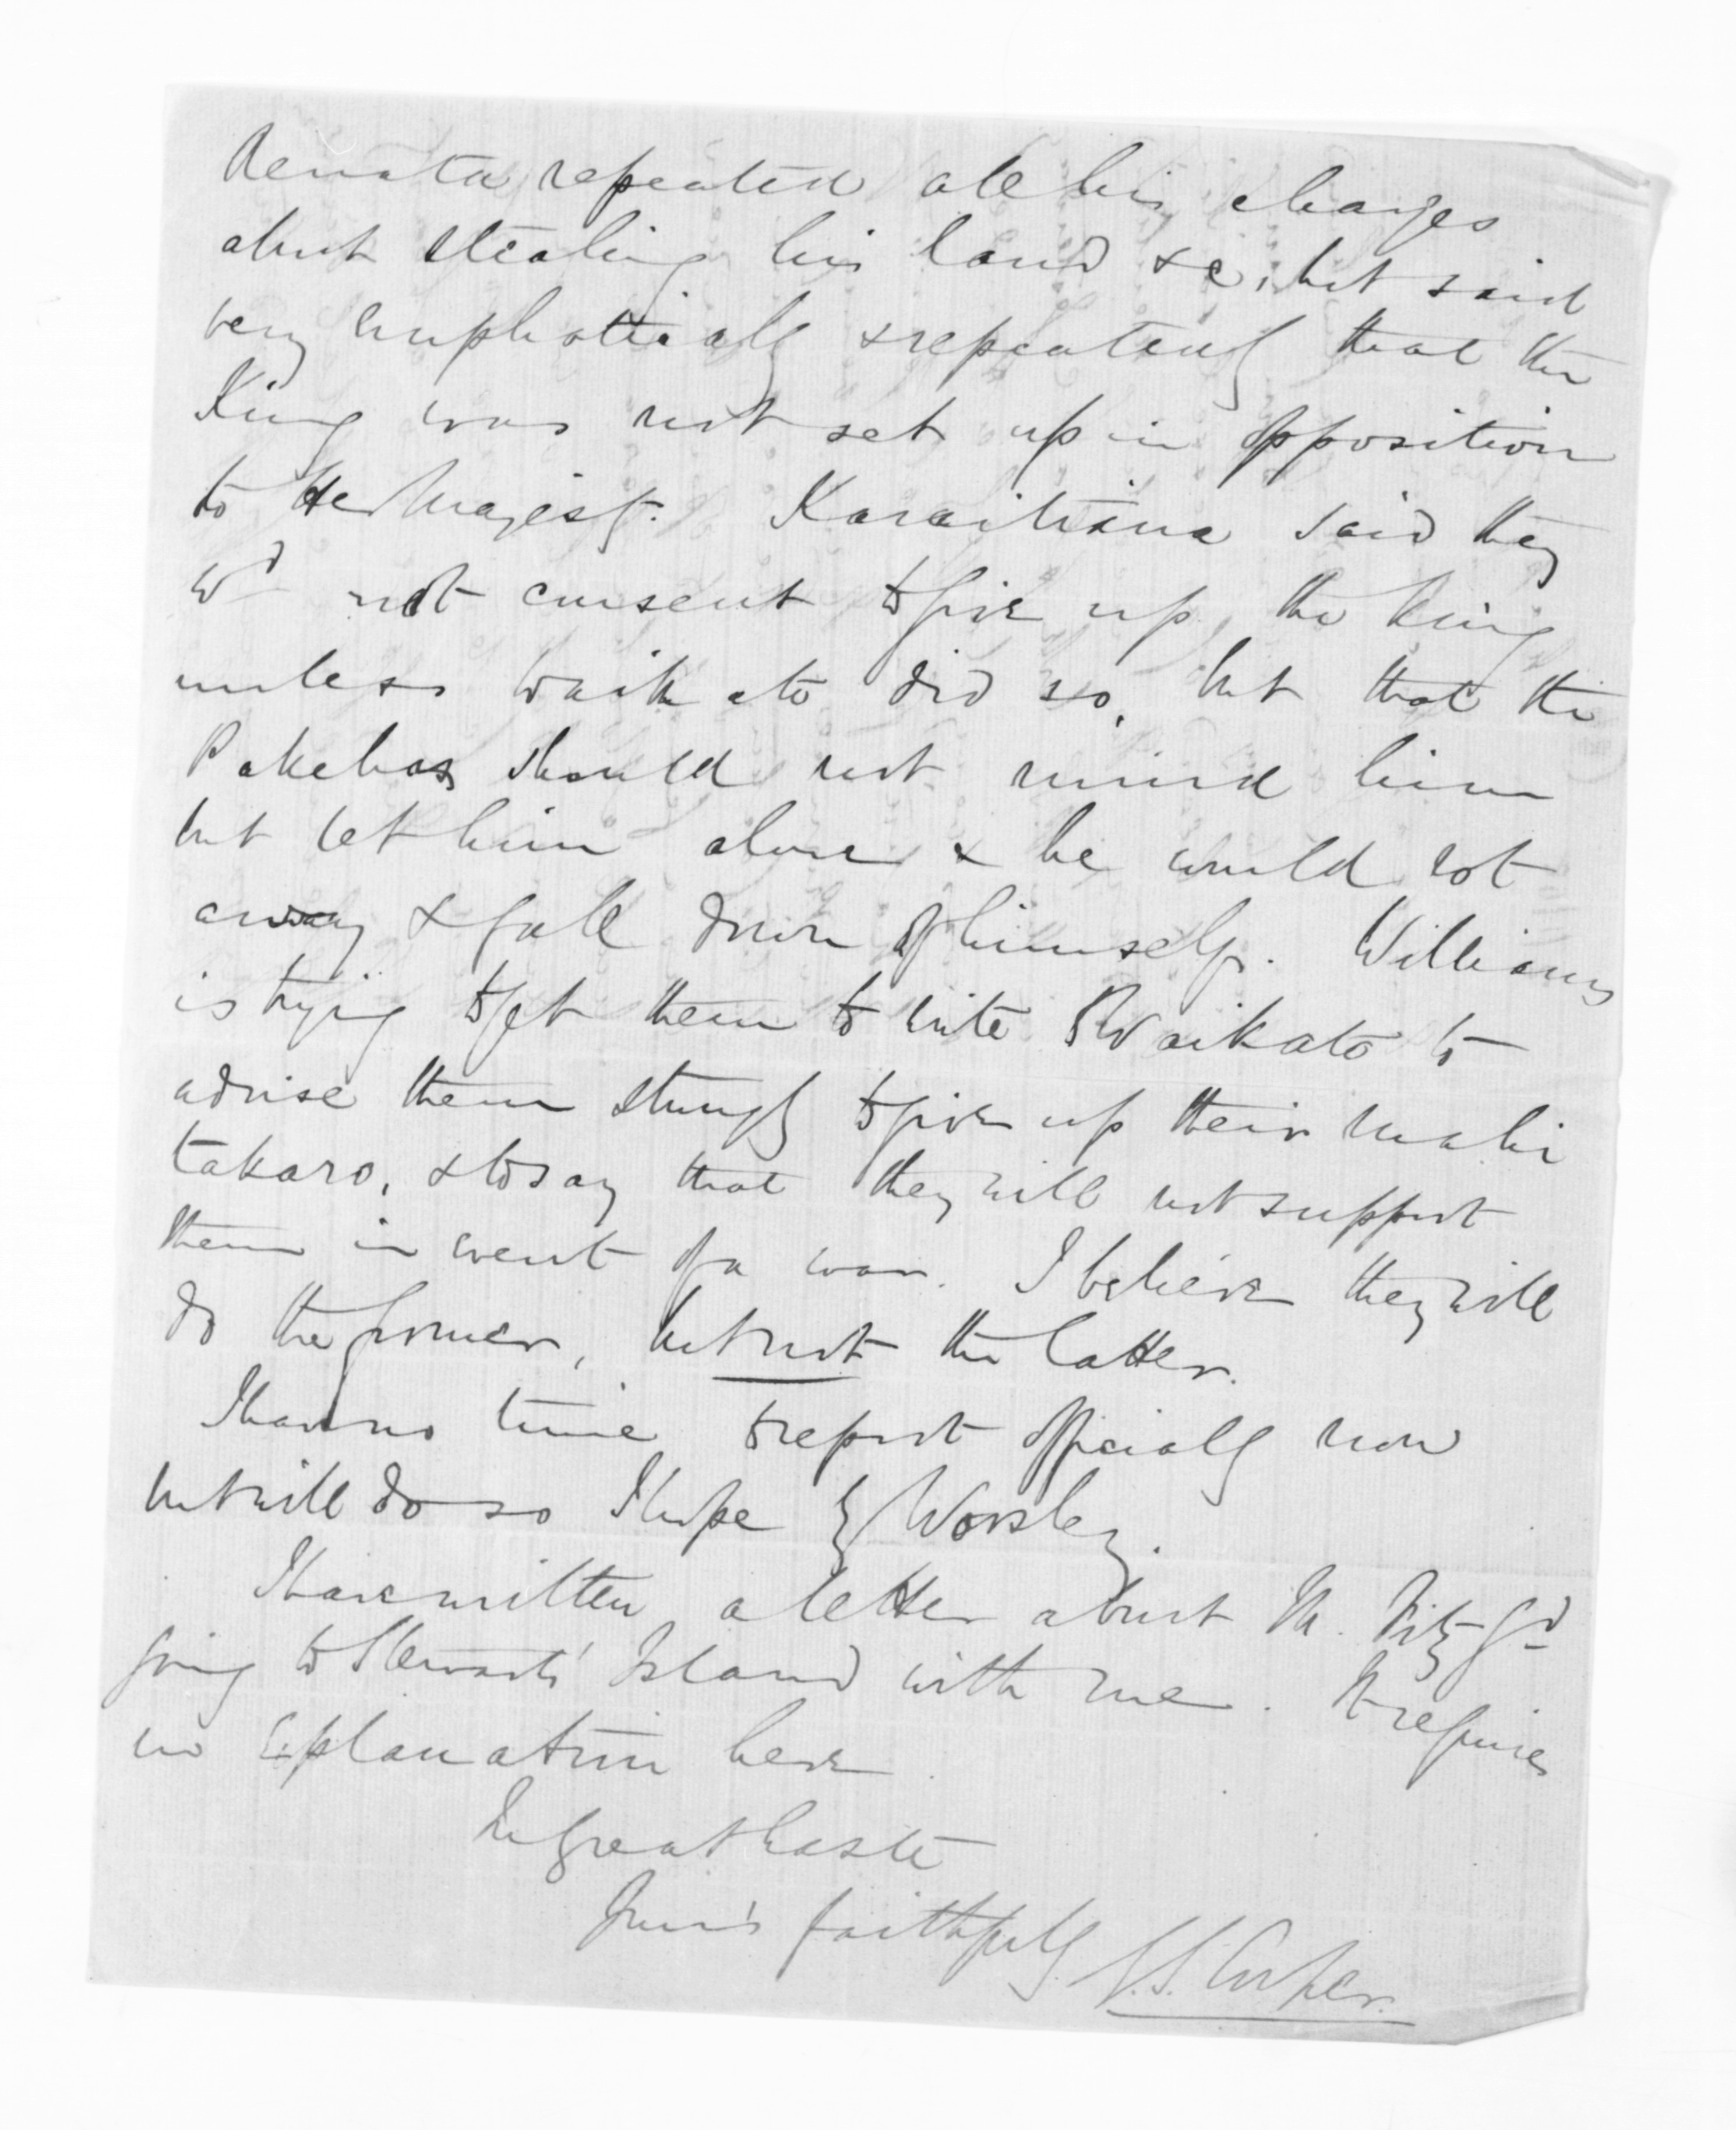 Renata repeated all his charges
about stealing his land &c, but said
very emphatically & repeatedly that the
King was not set up in opposition
to Her Majesty. Karaitiana said they
wd not consent to give up the King
unless Waikato did so, but that the
Pakehas should not mind him
but let him alone & he would rot
away & fall down of himself. Williams
is trying to get them to write to Waikato to
advise them strongly to give up their mahi
takaro, & to say that they will not support
them in event of a war. I believe they will
do the former, but not the latter.
I have no time to report officially now
but will do so I hope by Worsley.
I have written a letter about Mr. Fitzgd
going to Stewarts' Island with me. It requires
no explanation here.
In great haste
Your's faithfully
G.S. Cooper.